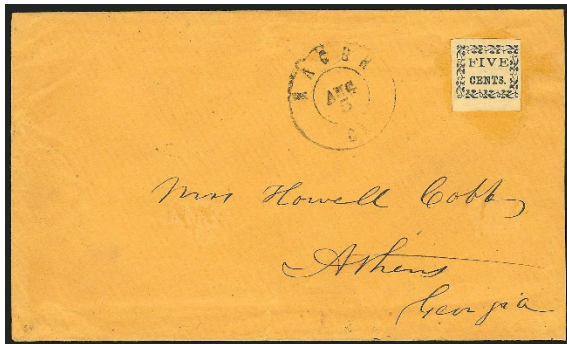 MACON
AUG
5
FIVE
CENTS.
Mrs Howell Cobb
Athens
Georgia